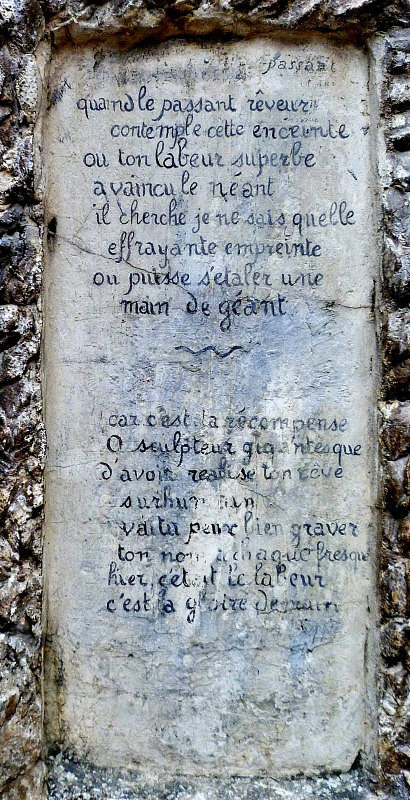 passant
quand le passant rêveur
contemple cette enceinte
ou ton labeur superbe
a vaincu le néant
il cherche je ne sais quelle
effrayante empreinte
ou puisse s'etaler une
main de géant
car c'est la récompense
O sculpteur gigantesque
d'avoir realise ton rêve
surhumain
va tu peux bien graver
ton nom a chaque fresque
hier, c'était le labeur
c'est la gloire demain